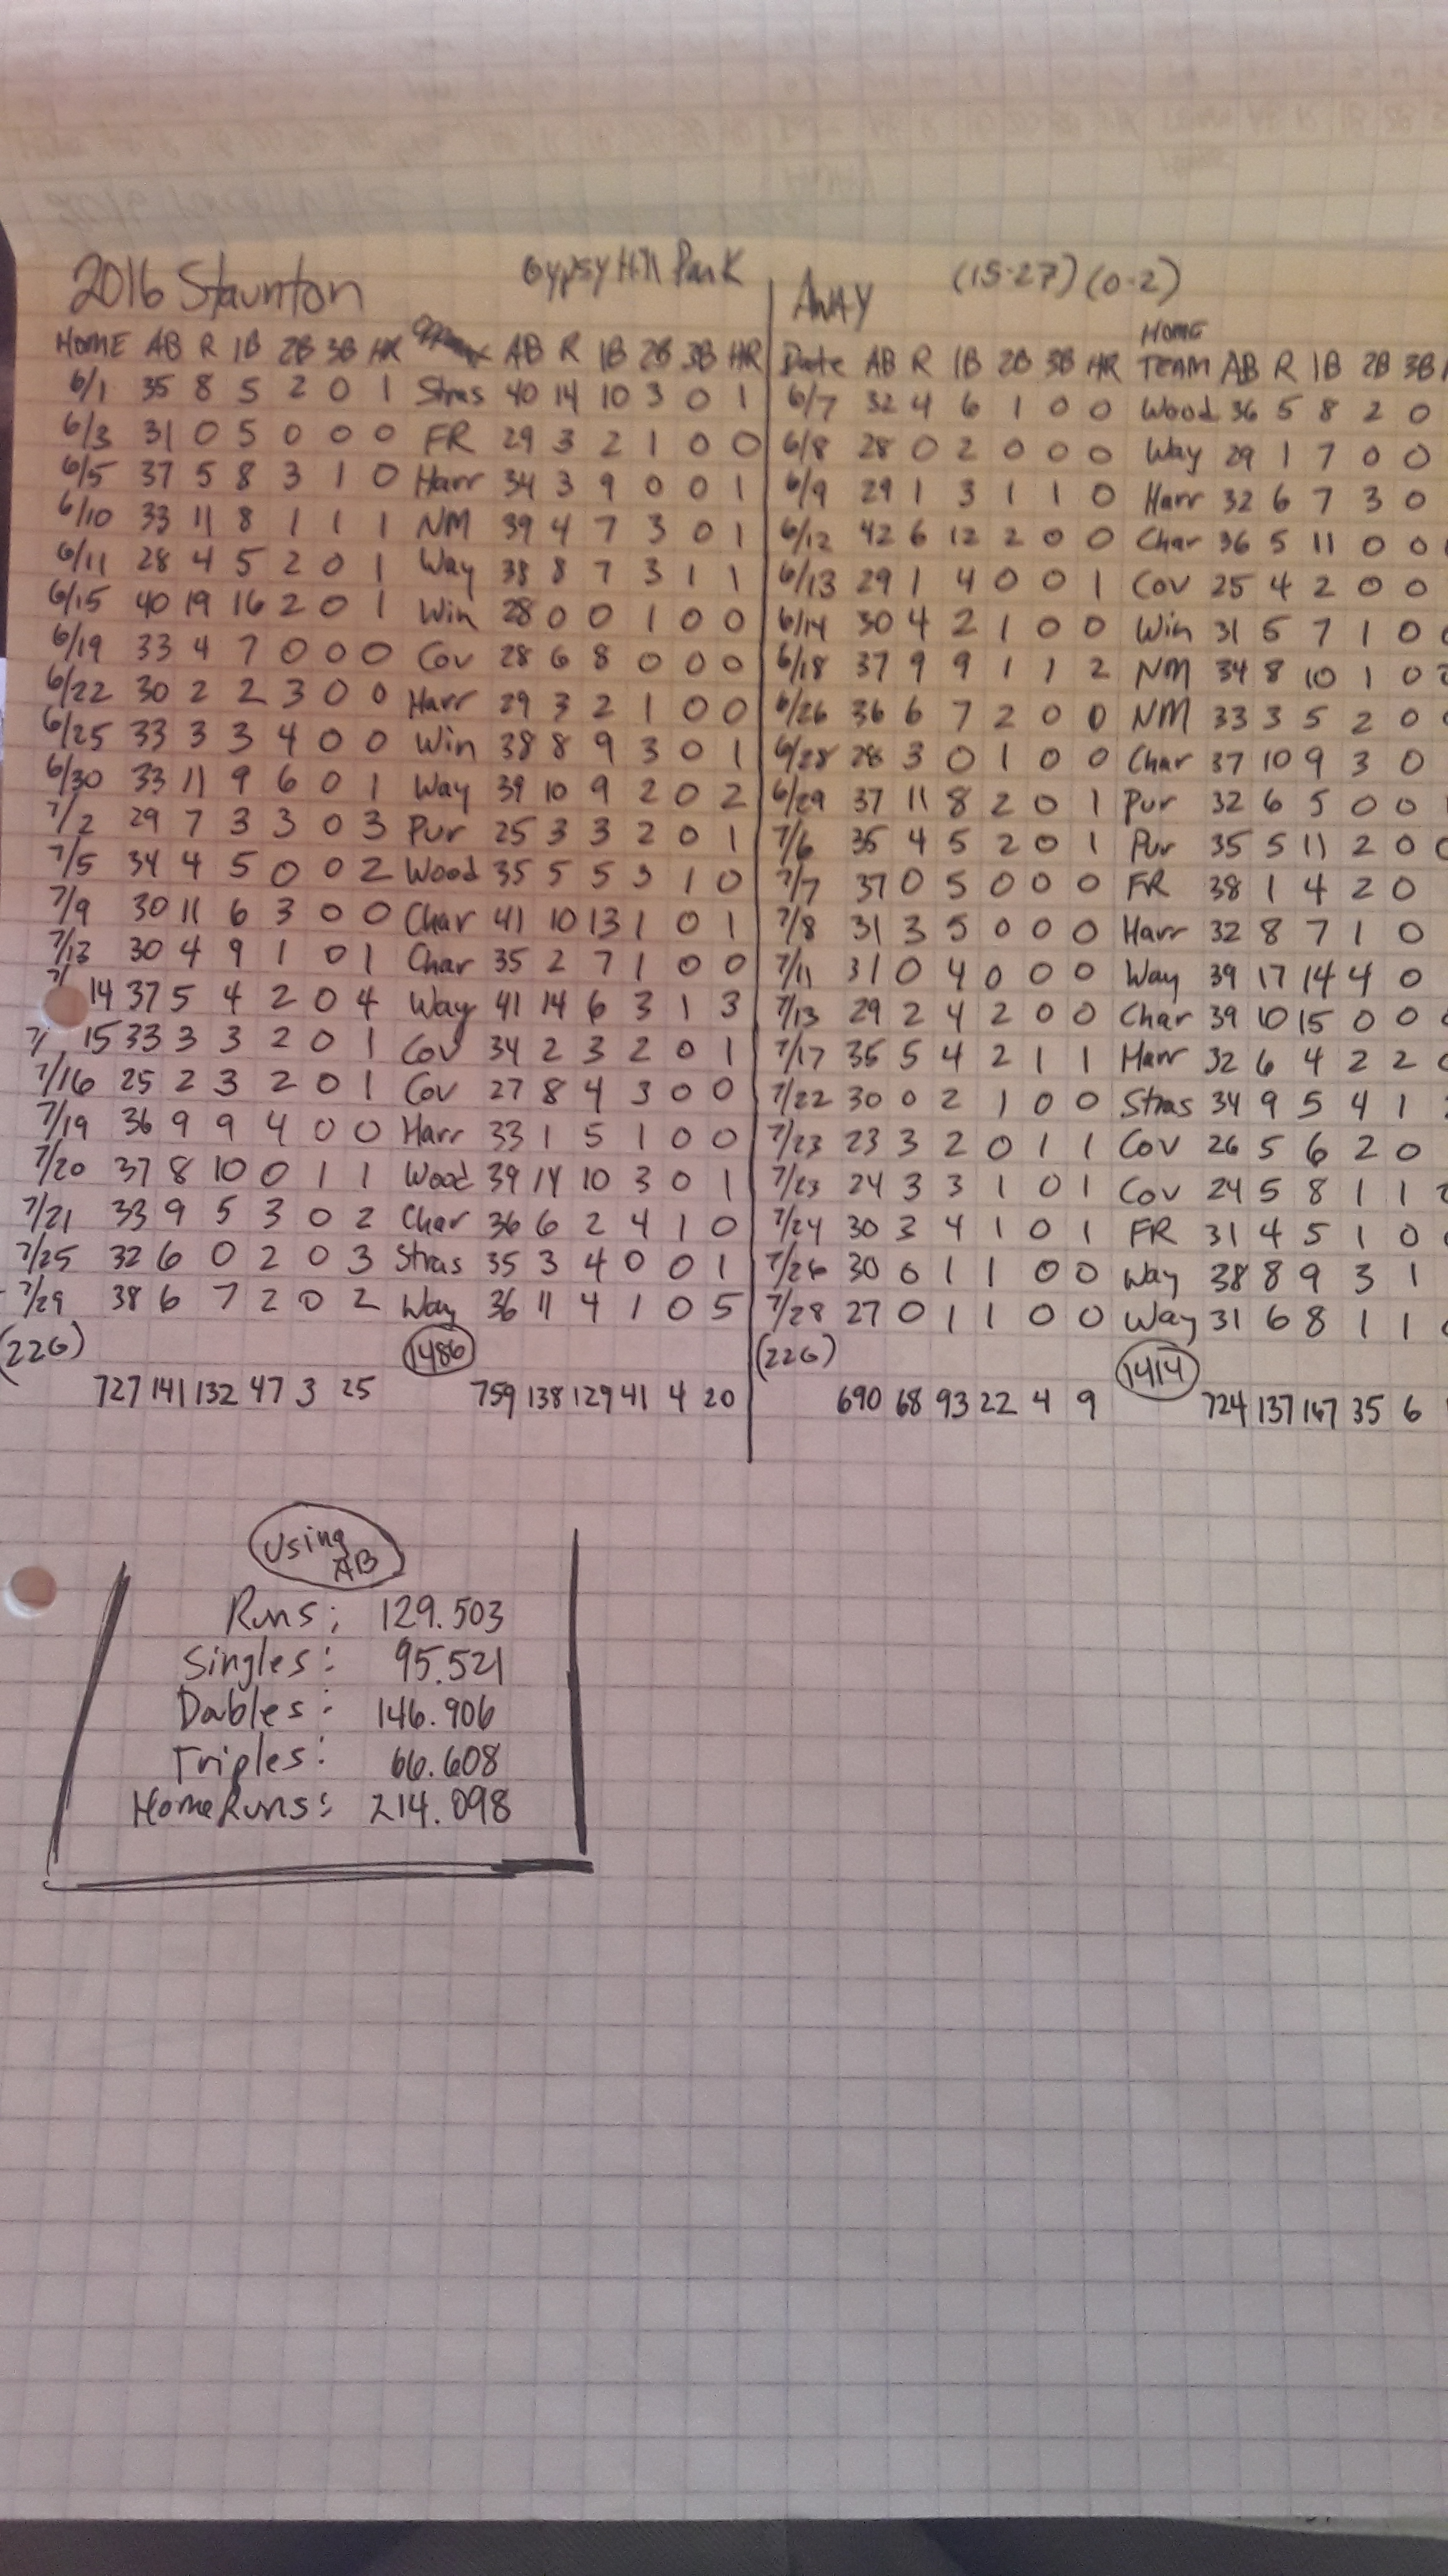 2016 Staunton Gypsy Hill Park Away (15-27) (0-2)
HOME AB R 1B 2B 3B HR AB R 1B 2B 3B HR Date AB R 1B 2B 3B HR HOME TEAM AB R 1B 2B 3B
6/1 35 8 5 2 0 1 Stras 40 14 10 3 0 1 6/7 32 4 6 1 0 0 Wood 36 5 8 2 0
6/3 31 0 5 0 0 0 FR 29 3 2 1 0 0 6/8 28 0 2 0 0 0 Way 29 1 7 0 0
6/5 37 5 8 3 1 0 Harr 34 3 9 0 0 1 6/9 29 1 3 1 1 0 Harr 32 6 7 3 0
6/10 33 11 8 1 1 1 NM 39 4 7 3 0 1 6/12 42 6 12 2 0 0 Char 36 5 11 0 0
6/11 28 4 5 2 0 1 Way 38 8 7 3 1 1 6/13 29 1 4 0 0 1 Cov 25 4 2 0 0
6/15 40 19 16 2 0 1 Win 28 0 0 1 0 0 6/14 30 4 2 1 0 0 Win 31 5 7 1 0
6/19 33 4 7 0 0 0 Cov 28 6 8 0 0 0 6/18 37 9 9 1 1 2 NM 34 8 10 1 0
6/22 30 2 2 3 0 0 Harr 29 3 2 1 0 0 6/26 36 6 7 2 0 0 NM 33 3 5 2 0
6/25 33 3 3 4 0 0 Win 38 8 9 3 0 1 6/28 28 3 0 1 0 0 Char 37 10 9 3 0
6/30 33 11 9 6 0 1 Way 39 10 9 2 0 2 6/29 37 11 8 2 0 1 Pur 32 6 5 0 0
7/2 29 7 3 3 0 3 Pur 25 3 3 2 0 1 7/6 35 4 5 2 0 1 Pur 35 5 11 2 0
7/5 34 4 5 0 0 2 Wood 35 5 5 3 1 0 7/7 37 0 5 0 0 0 FR 38 1 4 2 0
7/9 30 11 6 3 0 0 Char 41 10 13 1 0 1 7/8 31 3 5 0 0 0 Harr 32 8 7 1 0
7/13 30 4 9 1 0 1 Char 35 2 7 1 0 0 7/11 31 0 4 0 0 0 Way 39 17 14 4 0
7/ 14 37 5 4 2 0 4 Way 41 14 6 3 1 3 7/13 29 2 4 2 0 0 Char 39 10 15 0 0
7/ 15 33 3 3 2 0 1 Cov 34 2 3 2 0 1 7/17 35 5 4 2 1 1 Harr 32 6 4 2 2
7/16 25 2 3 2 0 1 Cov 27 8 4 3 0 0 7/22 30 0 2 1 0 0 Stras 34 9 5 4 1
7/19 36 9 9 4 0 0 Harr 33 1 5 1 0 0 7/23 23 3 2 0 1 1 Cov 26 5 6 2 0
7/20 37 8 10 0 1 1 Wood 39 14 10 3 0 1 7/23 24 3 3 1 0 1 Cov 24 5 8 1 1
7/21 33 9 5 3 0 2 Char 36 6 2 4 1 0 7/24 30 3 4 1 0 1 FR 31 4 5 1 0
7/25 32 6 0 2 0 3 Stras 35 3 4 0 0 1 7/26 30 0 1 1 0 0 Way 38 8 9 3 1
7/29 38 6 7 2 0 2 Way 36 11 4 1 0 5 7/28 27 0 1 1 0 0 Way 31 6 8 1 1
(22G) 1486 (22G) 1414
727 141 132 47 3 25 759 138 129 41 4 20 690 68 93 22 4 9 724 137 167 35 6
Using AB
Runs: 129.503
Singles: 95.521
Doubles: 146.906
Triples: 66.608
HomeRuns: 214.098